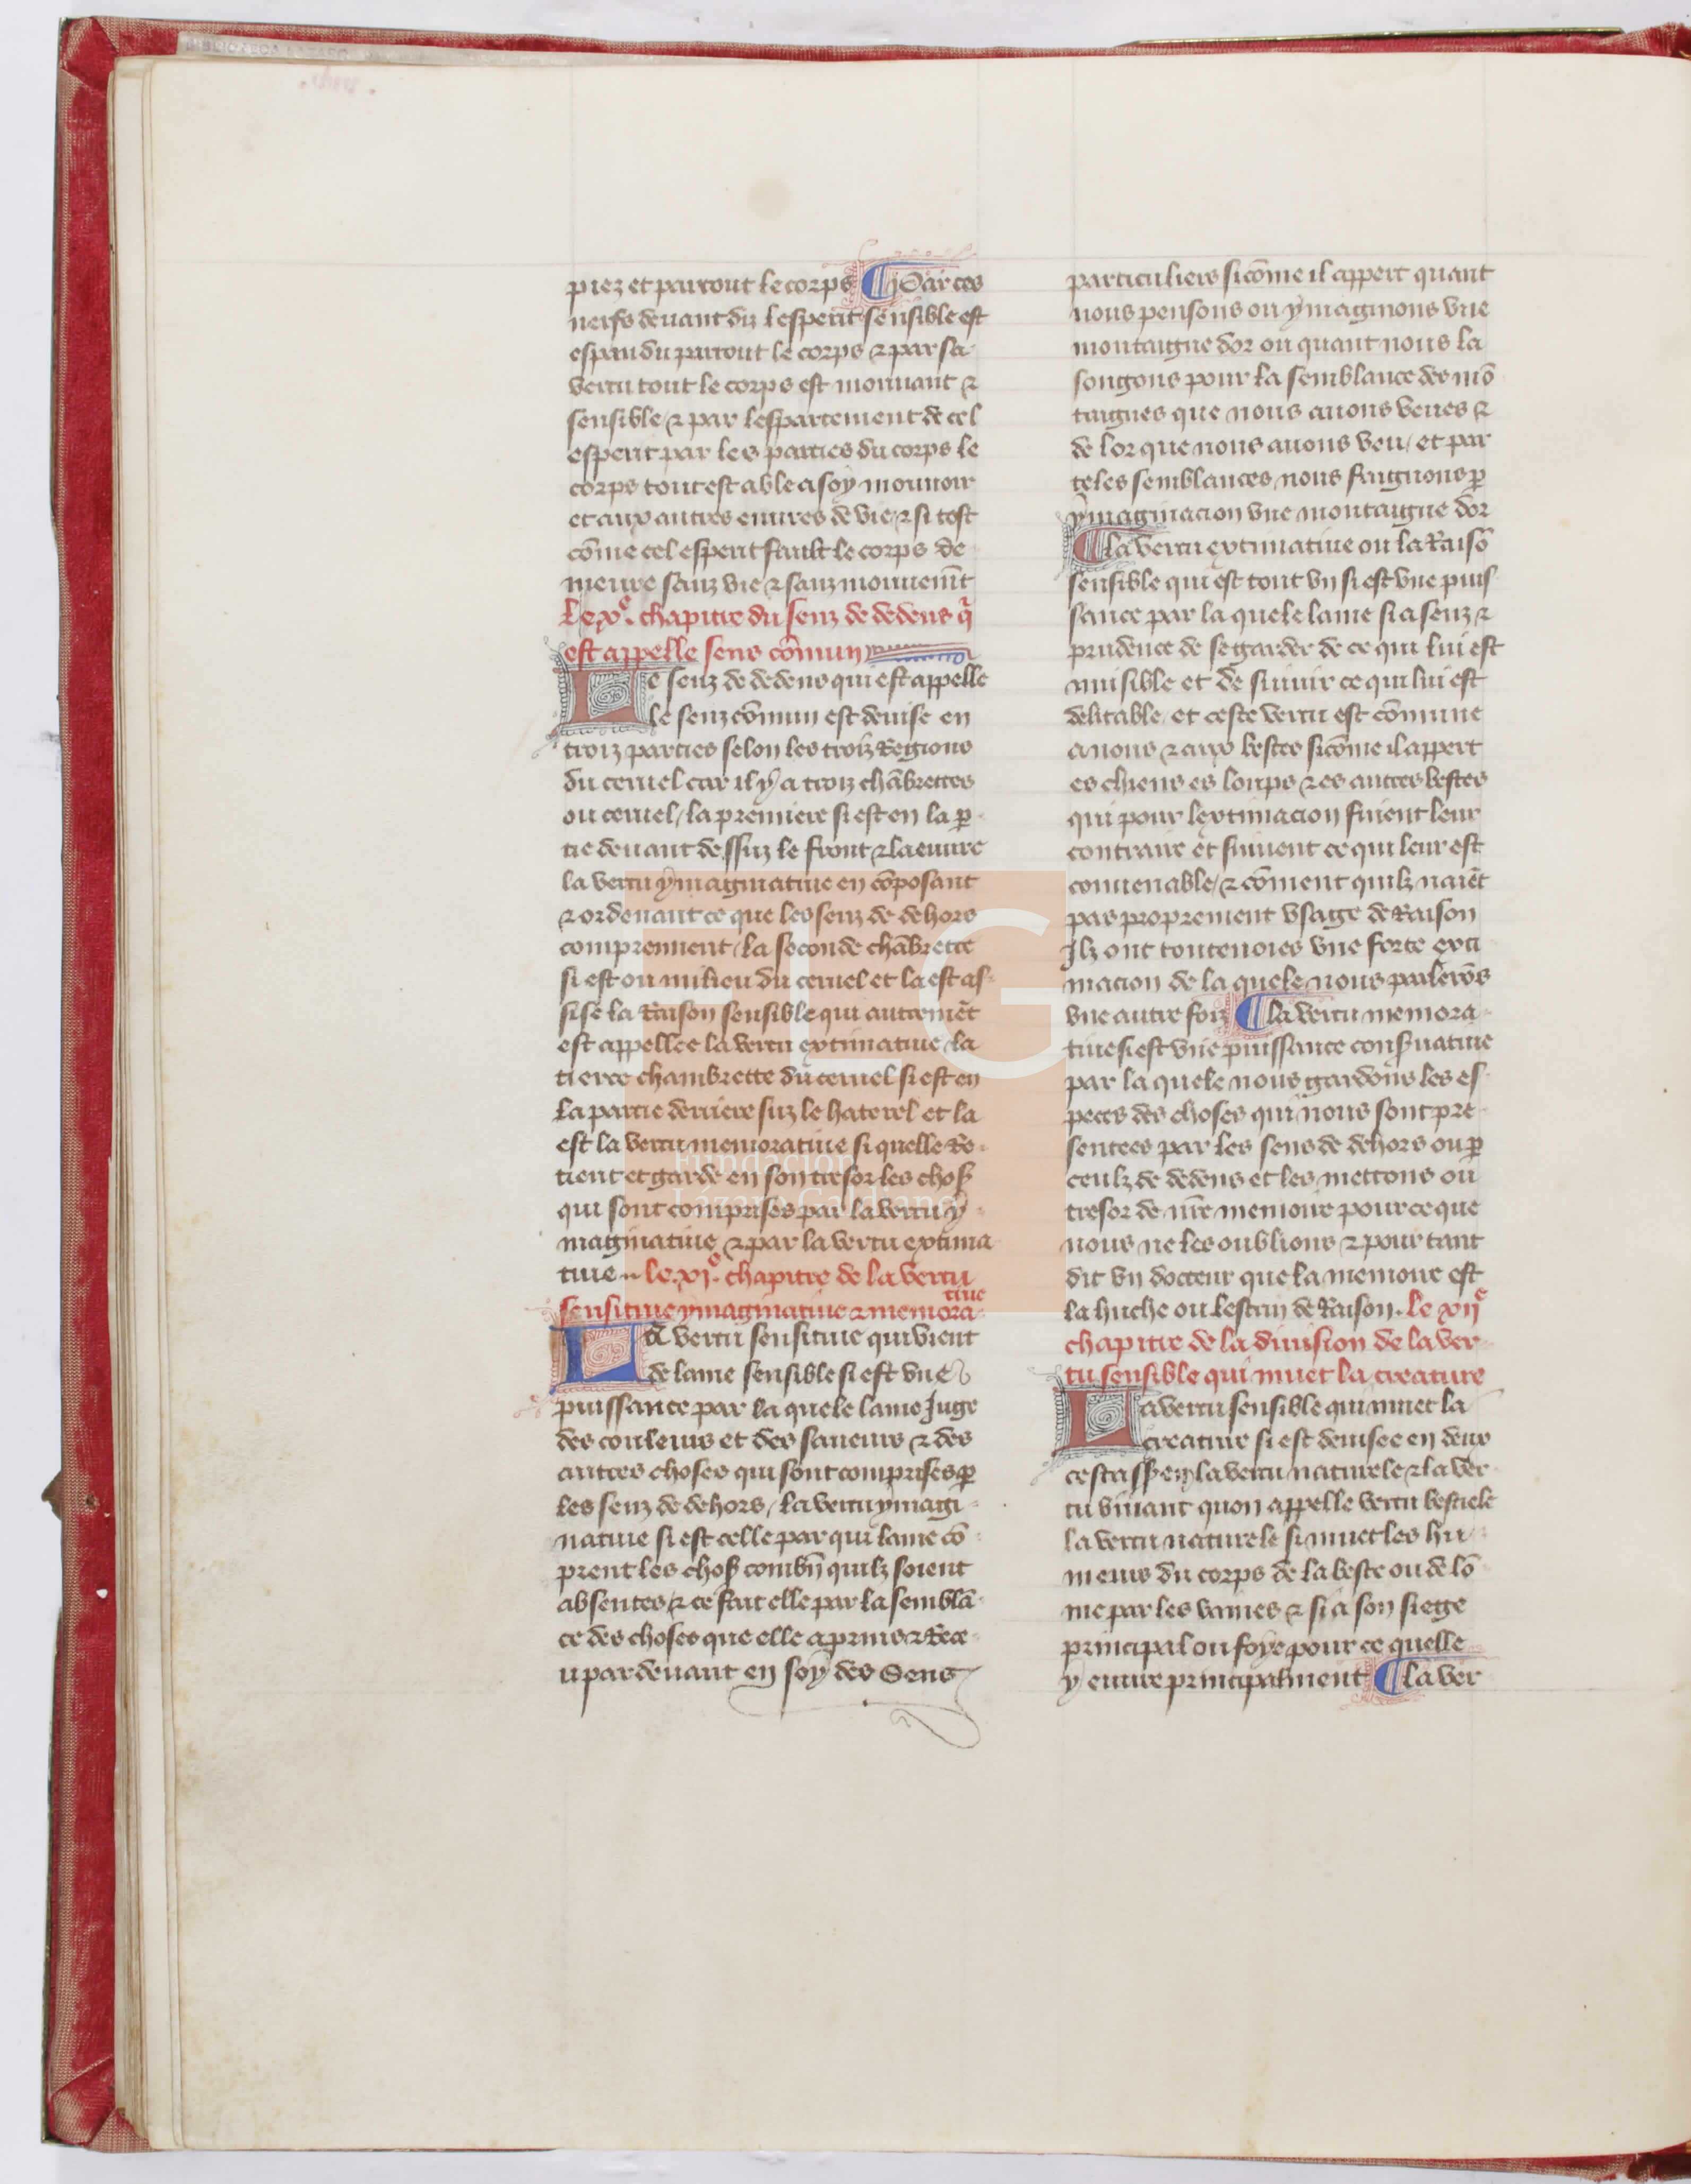 piez et par tout le corps ¶ Par ces
nerfs deuant diz lesperit sensible est
espandu par tout le corps ⁊ par sa
vertu tout le corps est mouuant ⁊
sensible / ⁊ par lespartement de cel
esperit par les parties du corps le
corps tout est able a soy mouuoir
et aux autres euures de vie / ⁊ si tost
cōme cel esperit fault le corps de
meure sanz vie ⁊ sanz mouuemēt
Le xe. chapitre du senz de dedens q̄
est appelle sens cōmun
Le senz de dedens qui est appelle
le senz cōmun est deuise en
troiz parties selon les troiz Regions
du ceruel car il y a troiz chābrettes
ou ceruel / la premiere si est en la ꝑ
tie deuant dessuz le front ⁊ la euure
la vertu ymaginatiue en cōposant
⁊ ordenant ce que les senz de dehors
comprennent / la seconde chābrette
si est ou milieu du ceruel et la est as
sise la Raison sensible qui autremēt
est appellee la vertu extimatiue / la
tierce chambrette du ceruel si est en
la partie derriere suz le haterel et la
est la vertu memoratiue si quelle Re
tient et garde en son tresor les chosꝭ
qui sont comprises par la vertu y
maginatiue ⁊ par la vertu extima
tiue .. le xie. chapitre de la vertu
sensitiue ymaginatiue ⁊ memoratiue
La vertu sensitiue qui vient
de lame sensible si est vne
puissance par la quele lame Juge
des couleurs et des saueurs ⁊ des
autres choses qui sont comprises ꝑ
les senz de dehors / la vertu ymagi
natiue si est celle par qui lame cō
prent les chosꝭ combn̄ quilz soient
absentes / ⁊ ce fait elle par la semblā
ce des choses que elle a prins ⁊ Rece
u par deuant en soy des Sens
particuliers sicōme il appert quant
nous pensons ou ymaginons vne
montaigne dor ou quant nous la
songons pour la semblance des mō
taignes que nous auons veues ⁊
de lor que nous auons veu / et par
teles semblances nous faignons ꝑ
ymaginacion vne montaigne dor
¶ la vertu extimatiue ou la Raisō
sensible qui est tout vn si est vne puis
sance par la quele lame si a senz ⁊
prudence de se garder de ce qui lui est
nuisible et de suiuir ce qui lui est
delitable / et ceste vertu est cōmune
a nous ⁊ aux bestes sicōme il appert
es chiens es loups ⁊ es autres bestes
qui pour lextimacion fuient leur
contraire et suiuent ce qui leur est
conuenable / ⁊ cōment quilz naiēt
pas proprement vsage de Raison
Ilz ont toutenoies vne forte exti
macion de la quele nous parlerōs
vne autre foiz ¶ la vertu memora
tiue si est vne puissance cons̄uatiue
par la quele nous gardons les es
peces des choses qui nous sont pre
sentees par les sens de dehors ou ꝑ
ceulz de dedens et les mettons ou
tresor de nr̄e memoire pour ce que
nous ne les oublions ⁊ pour tant
dit vn docteur que la memoire est
la huche ou lescrin de Raison. le xiie
chapitre de la diuision de la ver
tu sensible qui muet la creature
La vertu sensible qui muet la
creature si est deuisee en deux
cest ass̄ en la vertu naturele ⁊ la ver
tu viuant quon appelle vertu bestiele
la vertu naturele si muet les hu
meurs du corps de la beste ou de lō
me par les vaines ⁊ si a son siege
principal ou foye pour ce quelle
y euure principalment ¶ la ver
Fundación
Lázaro Galdiano
FLG